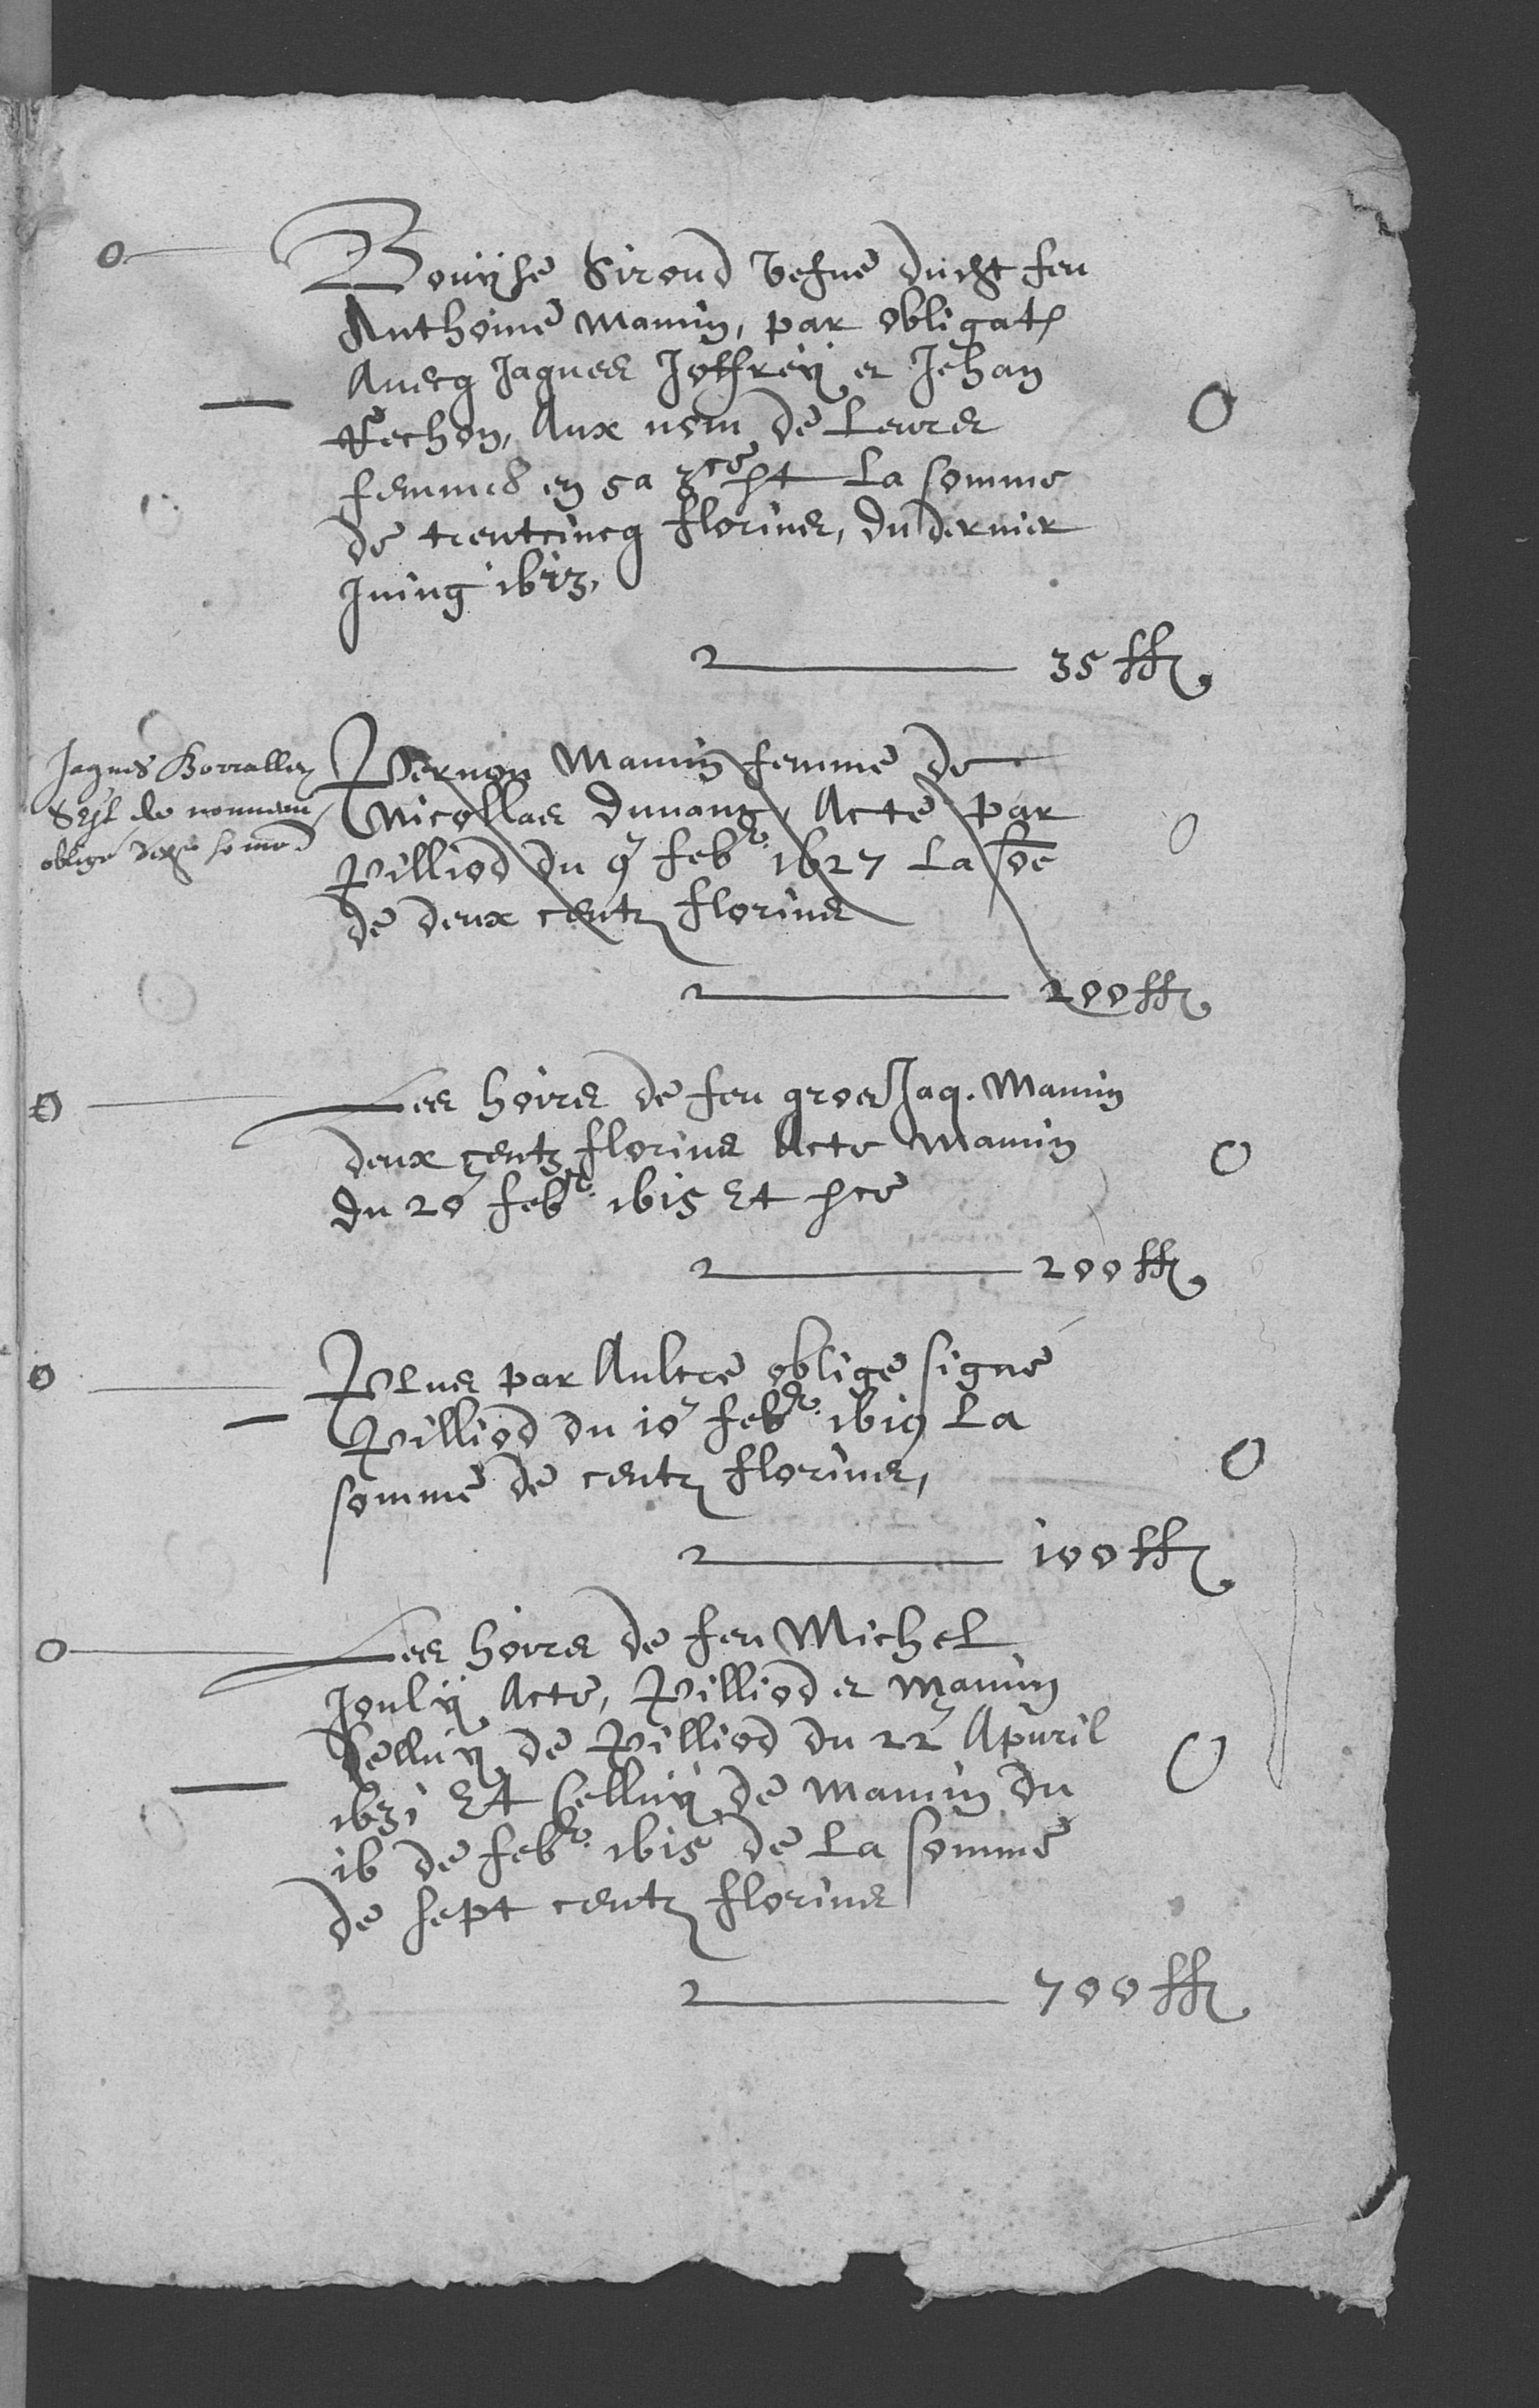 Bouyse Siroud vefue dudit feu
Anthoine Mamin, par obligat
Auecq Jaques Joffrey et Jehan
Fechon, Aux nom de Leures
femmes en sa La somme
de trentcincq florins, du dernier
Juing 1623,
2 35 ff
Jaques Borrallez
oblige
Pernon Mamin femme de
Nicollas Dunant, Acte par
Pilliod du 9 feb 1627 La soe
de deux centz florins
2 200 ff
Les hoirs de feu gros Jaq. Mamin
deux centz florins Acte Mamin
du 20 feb 1615 Et
2 200 ff
Plus par Aultre oblige signe
Pilliod du 10 feb 1619 La
somme de centz florins,
2 100 ff
Les hoirs de feu Michel
Jouly Acte, Pilliod et Mamin
Celluy de Pilliod du 22 Apuril
1631 Et Celluy de Mamin du
16 de feb 1615 de La somme
de sept centz florins
2 700 ff